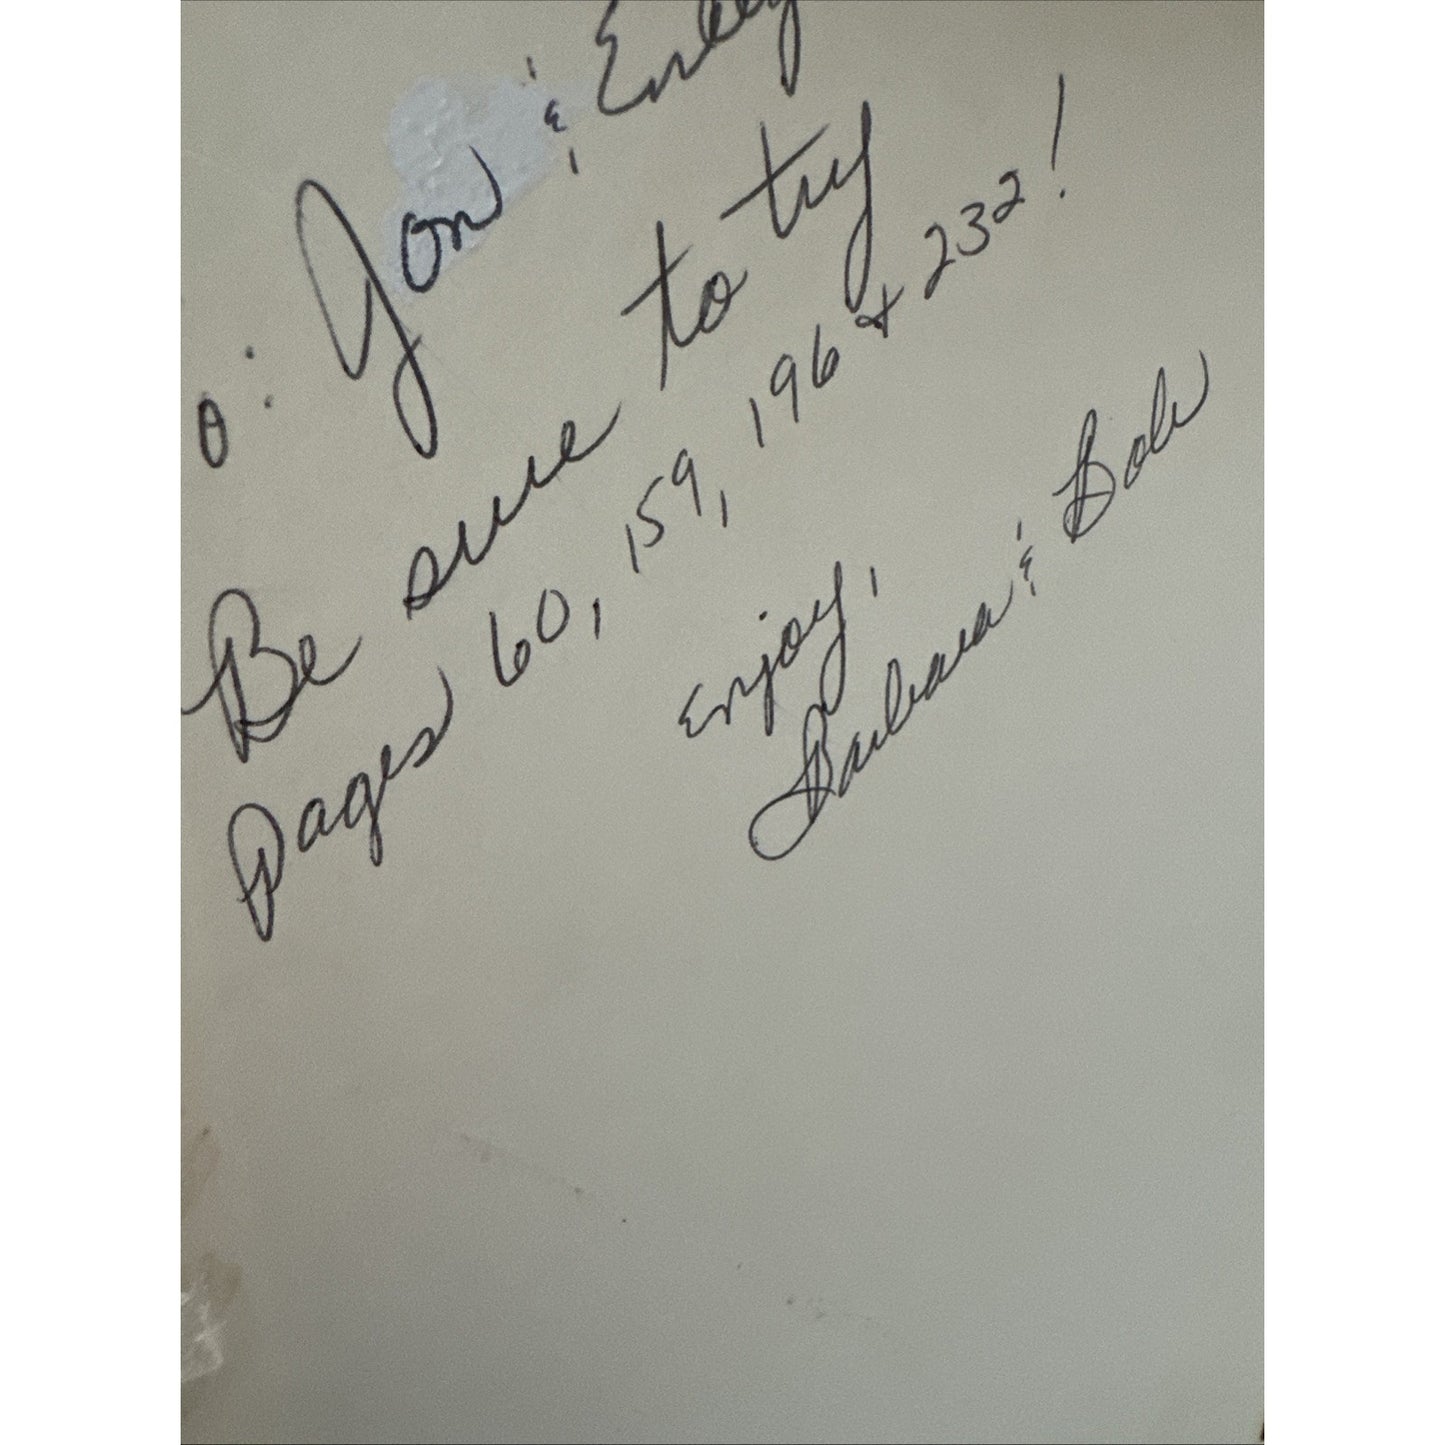 o: Jon &
Be sure to try
pages 60, 159, 196 + 232!
Enjoy,
Barbara & Bob